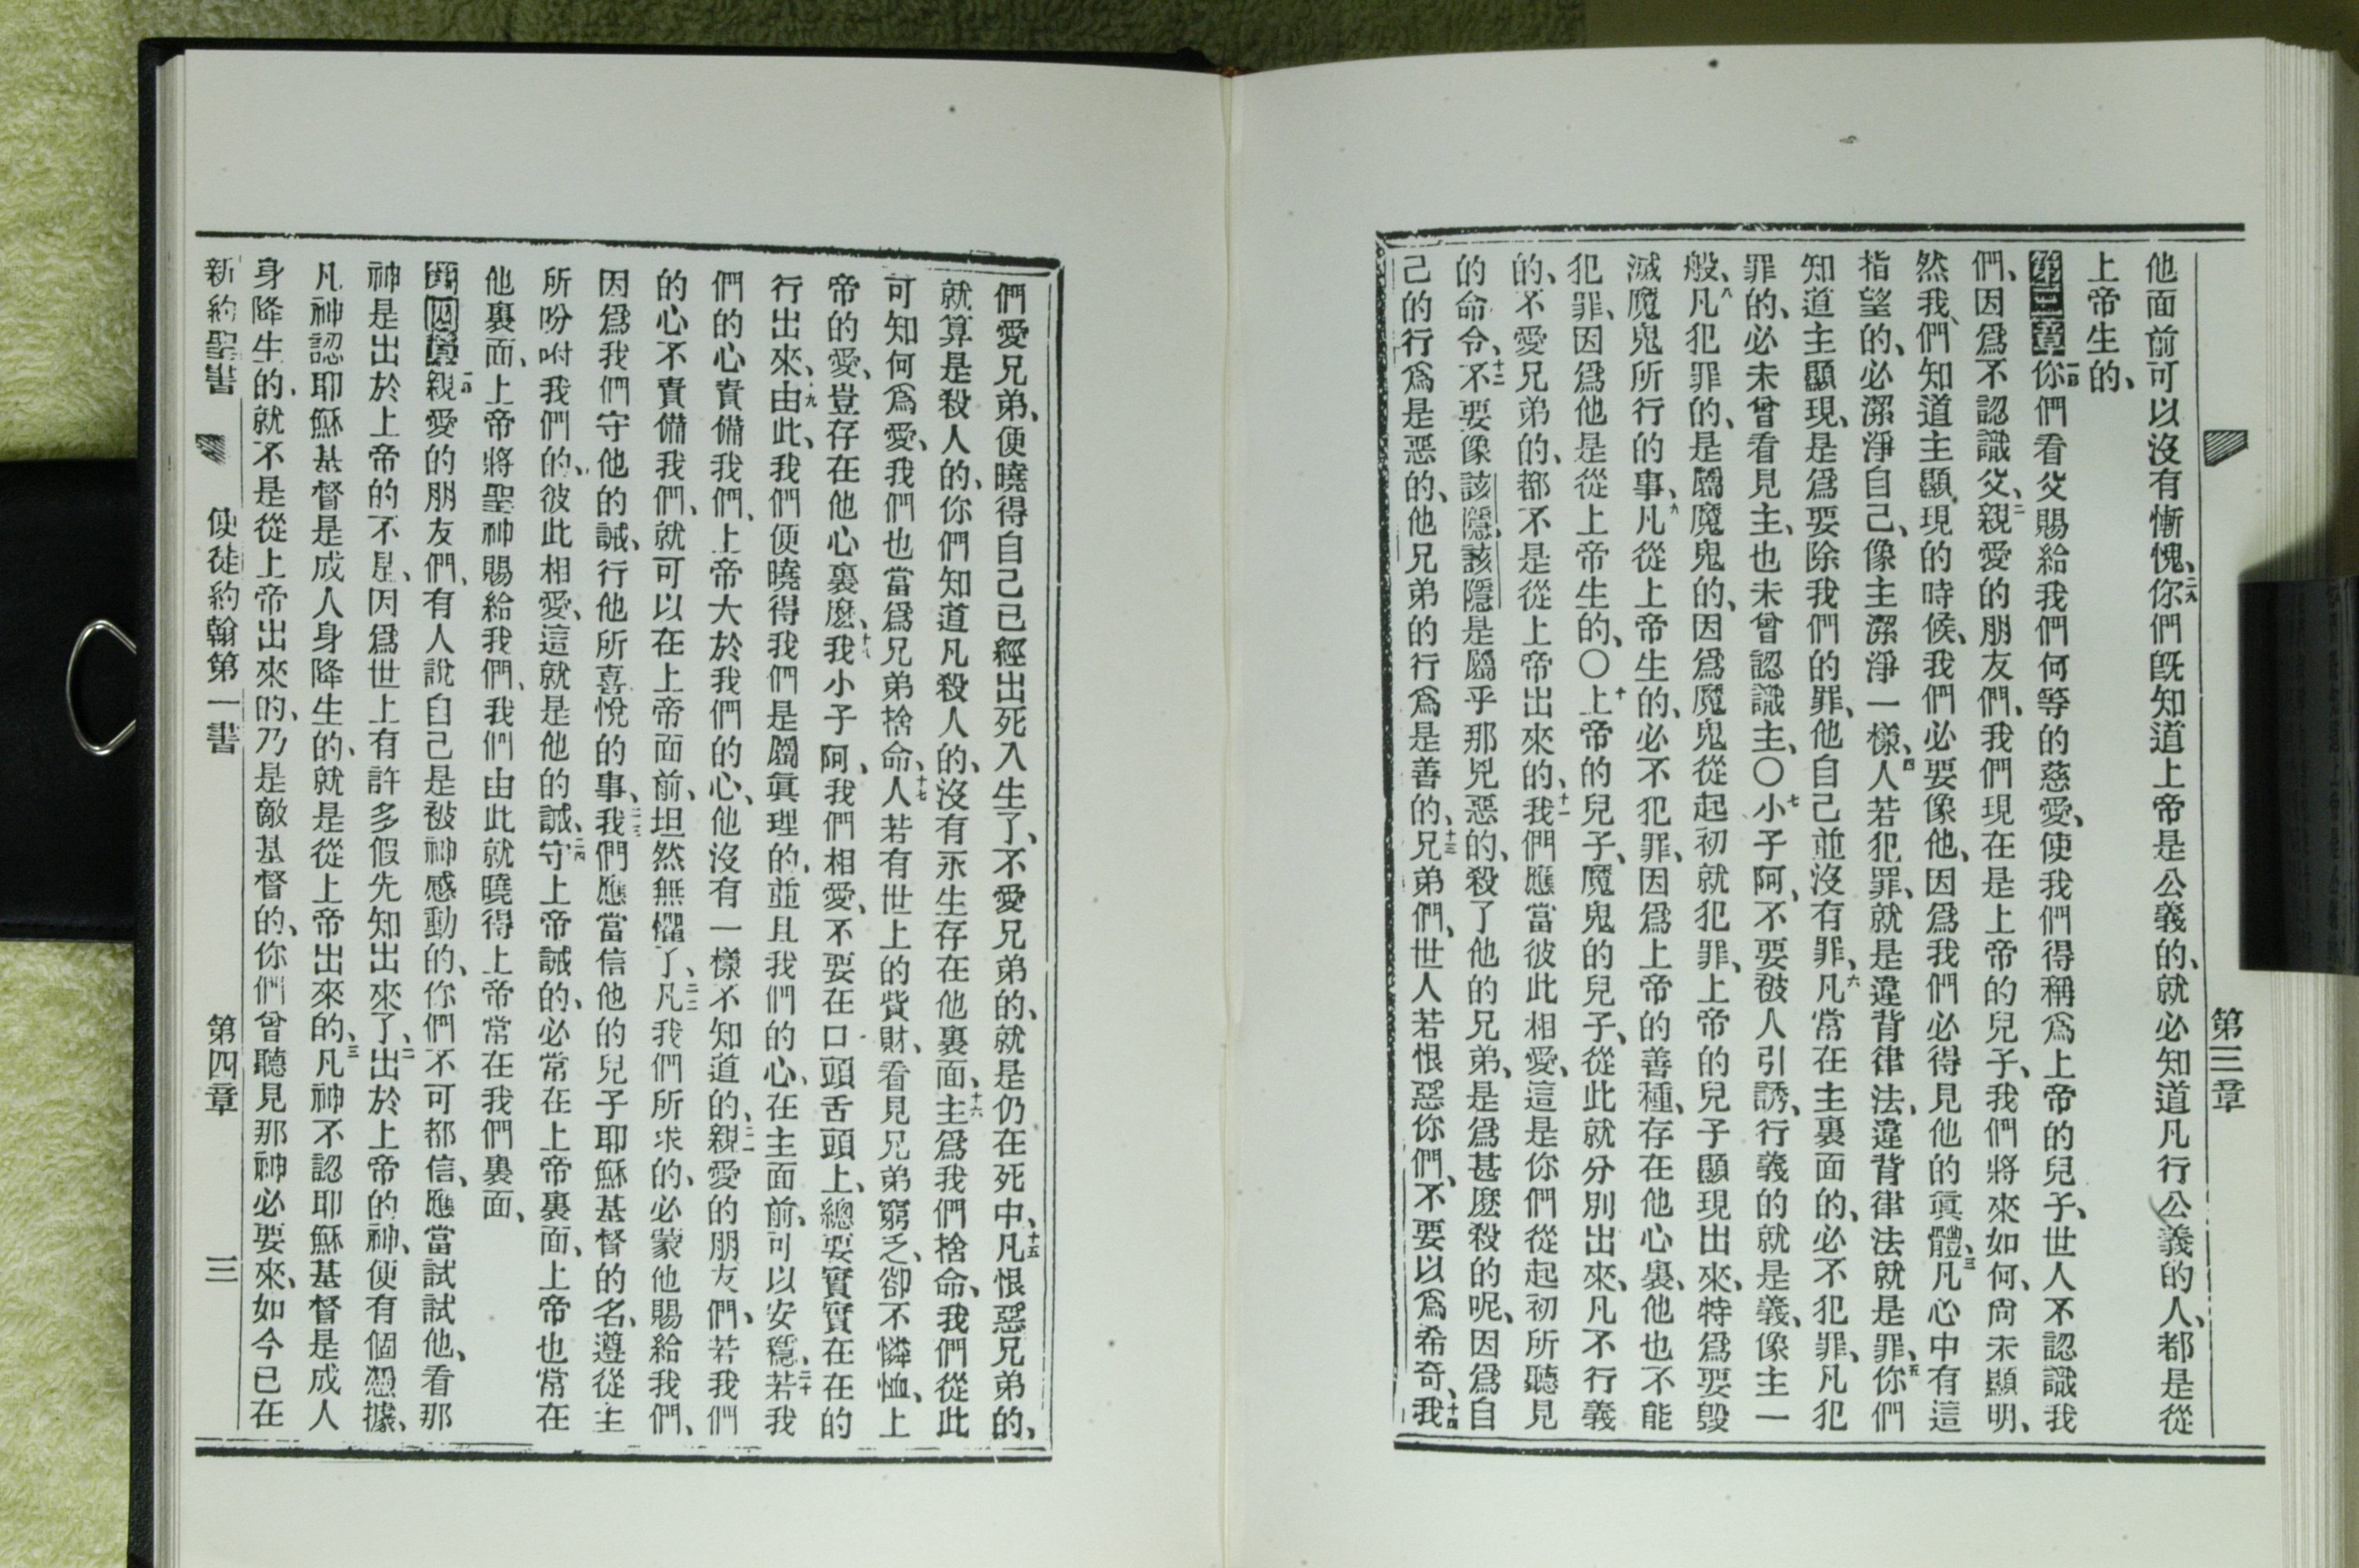 第三章
他面前可以沒有慚愧、二九你們旣知道上帝是公義的、就必知道凡行公義的人、都是從
上帝生的、
第三章一節你們看父賜給我們何等的慈愛、使我們得稱爲上帝的兒子、世人不認識我
們、因爲不認識父、二親愛的朋友們、我們現在是上帝的兒子、我們將來如何、尙未顯明、
然我們知道主顯現的時候、我們必要像他、因爲我們必得見他的眞體、三凡心中有這
指望的、必潔淨自己、像主潔淨一樣、四人若犯罪、就是違背律法、違背律法就是罪、五你們
知道主顯現、是爲要除我們的罪、他自己並沒有罪、六凡常在主裏面的、必不犯罪、凡犯
罪的、必未曾看見主、也未曾認識主、〇七小子阿、不要被人引誘、行義的就是義、像主一
般、八凡犯罪的、是屬魔鬼的、因爲魔鬼從起初就犯罪、上帝的兒子顯現出來、特爲要毀
滅魔鬼所行的事、九凡從上帝生的、必不犯罪、因爲上帝的善種、存在他心裏、他也不能
犯罪、因爲他是從上帝生的、〇十上帝的兒子、魔鬼的兒子、從此就分別出來、凡不行義
的、不愛兄弟的、都不是從上帝出來的、十一我們應當彼此相愛、這是你們從起初所聽見
的命令、十二不要像該隱、該隱是屬乎那兇惡的、殺了他的兄弟、是爲甚麽殺的呢、因爲自
己的行爲是惡的、他兄弟的行爲是善的、十三兄弟們、世人若恨惡你們、不要以爲希奇、十四我
們愛兄弟、便曉得自己已經出死入生了、不愛兄弟的、就是仍在死中、十五凡恨惡兄弟的、
就算是殺人的、你們知道凡殺人的、沒有永生存在他裏面、十六主爲我們捨命、我們從此
可知何爲愛、我們也當爲兄弟捨命、十七人若有世上的貲財、看見兄弟窮乏、卻不憐恤、上
帝的愛、豈存在他心裏麽、十八我小子阿、我們相愛、不要在口頭舌頭上、總要實實在在的
行出來、十九由此、我們便曉得我們是屬眞理的、並且我們的心、在主面前、可以安穩、二十若我
們的心責備我們、上帝大於我們的心、他沒有一樣不知道的、二一親愛的朋友們、若我們
的心不責備我們、就可以在上帝面前、坦然無懼了、二二凡我們所求的、必蒙他賜給我們、
因爲我們守他的誡、行他所喜悅的事、二三我們應當信他的兒子耶穌基督的名、遵從主
所吩咐我們的、彼此相愛、這就是他的誡、二四守上帝誡的、必常在上帝裏面、上帝也常在
他裏面、上帝將聖神賜給我們、我們由此就曉得上帝常在我們裏面、
第四章一節親愛的朋友們、有人說自己是被神感動的、你們不可都信、應當試試他、看那
神是出於上帝的不是、因爲世上有許多假先知出來了、二出於上帝的神、便有個憑據、
凡神認耶穌基督是成人身降生的、就是從上帝出來的、三凡神不認耶穌基督是成人
身降生的、就不是從上帝出來的、乃是敵基督的、你們曾聽見那神必要來、如今已在
新約聖書 使徒約翰第一書 第四章 三